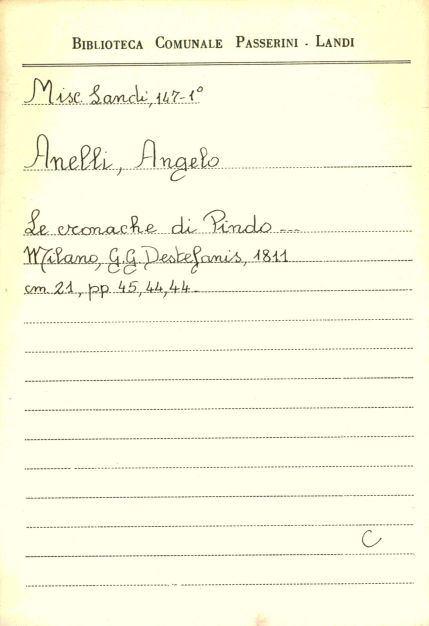 BIBLIOTECA COMUNALE PASSERINI - LANDI
Misc Landi, 147-1°
Anelli, Angelo
Le cronache di Pindo ---
Milano, G.G. Destefanis, 1811
cm 21, pp 45, 44, 44 -
C